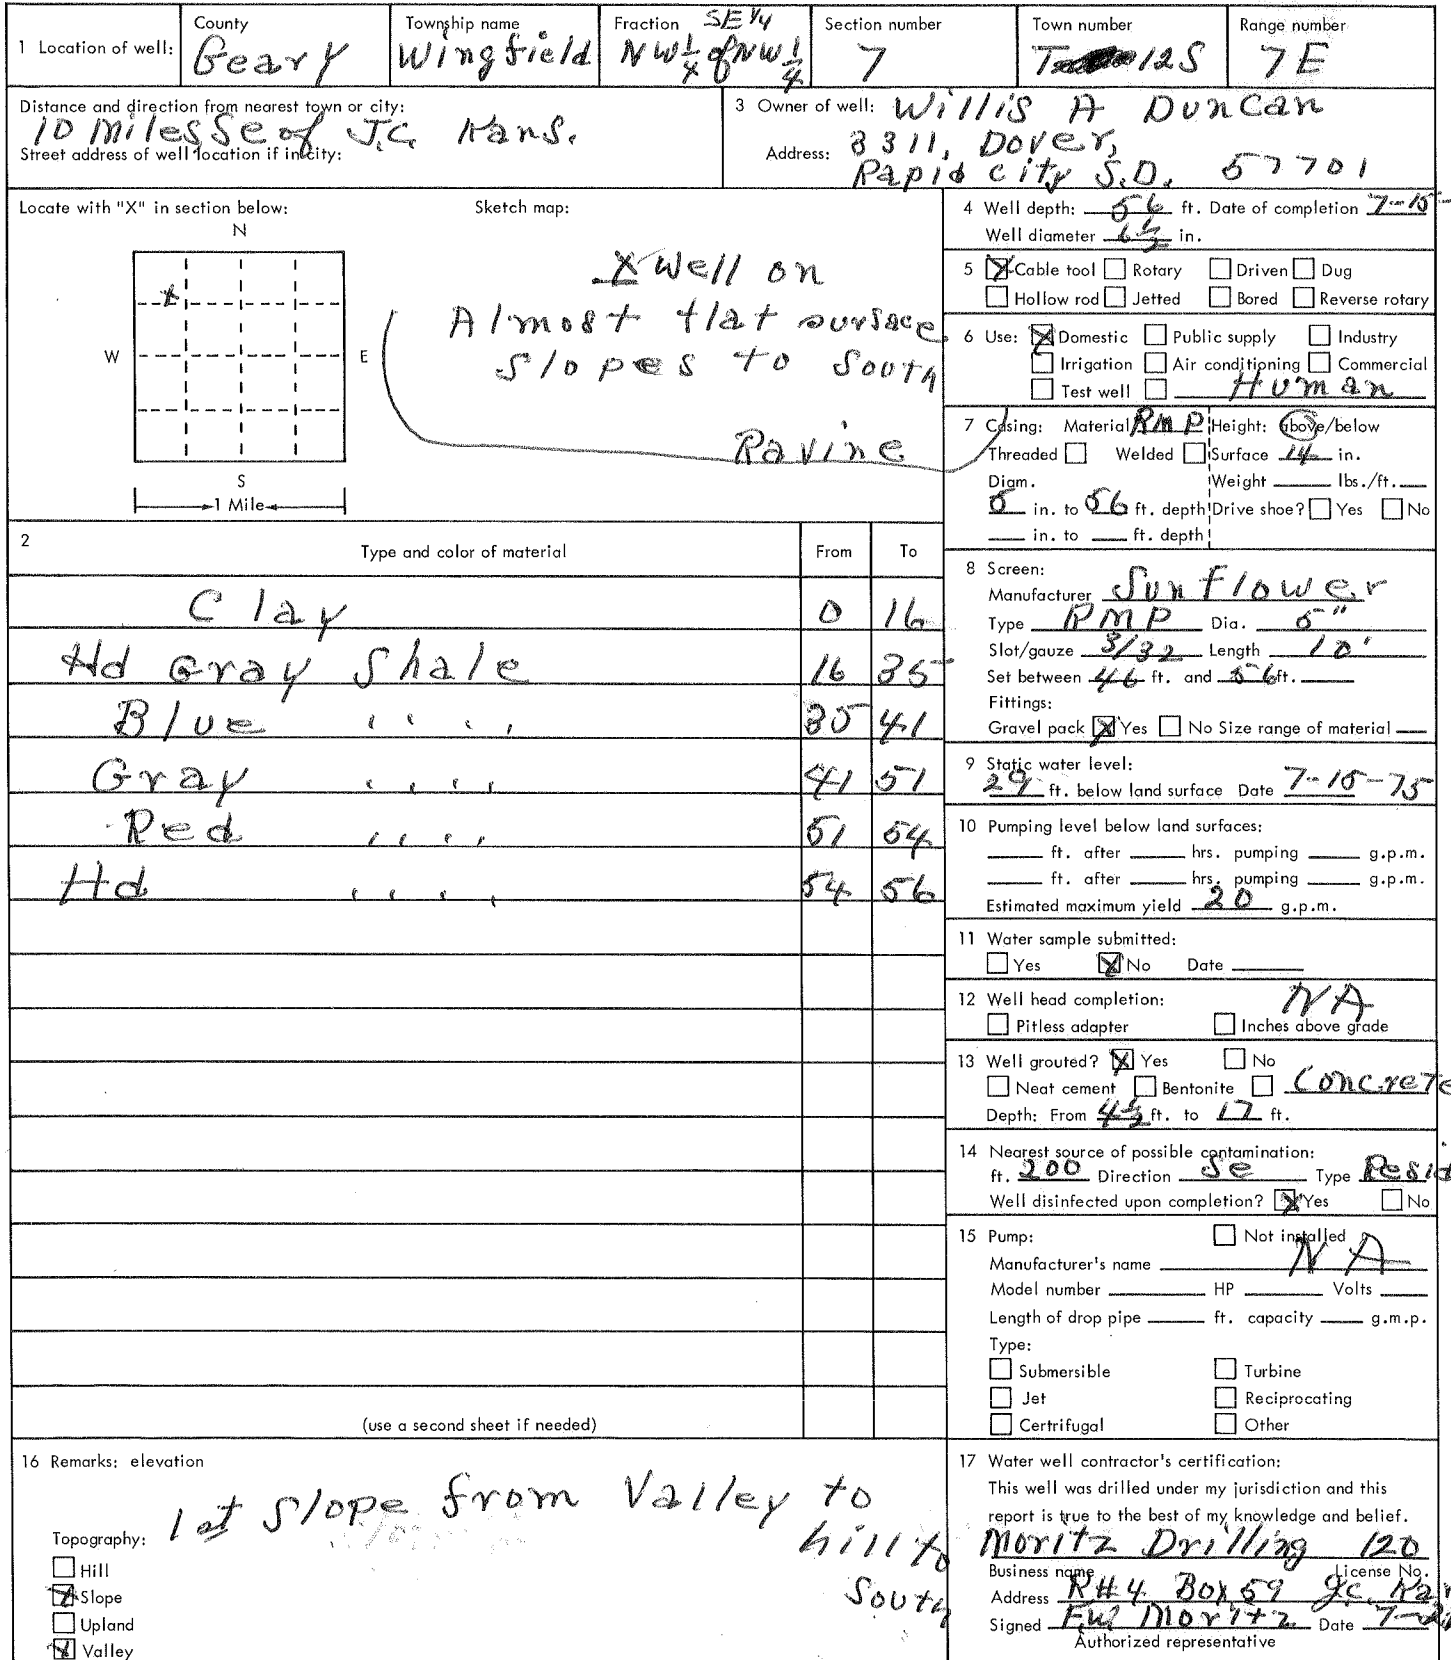 1 Location of well:
County
Geary
Township name
Wingfield
Fraction SE 1/4
NW 1/4 of NW 1/4
Section number
7
Town number
T 12S
Range number
7E
Distance and direction from nearest town or city:
10 Miles Se of J.C. Kans.
Street address of well location if in city:
3 Owner of well: Willis A Duncan
Address: 3311, Dover,
Rapid city S.D. 57701
Locate with "X" in section below:
N
W E
S
1 Mile
Sketch map:
X Well on
Almost flat surface
Slopes to South
Ravine
4 Well depth: 56 ft. Date of completion 7-15-
Well diameter 6 1/2 in.
5 X Cable tool Rotary Driven Dug
Hollow rod Jetted Bored Reverse rotary
6 Use: X Domestic Public supply Industry
Irrigation Air conditioning Commercial
Test well Human
7 Casing: Material RMP Height: above/below
Threaded Welded Surface 14 in.
Diam. Weight lbs./ft.
5 in. to 56 ft. depth Drive shoe? Yes No
in. to ft. depth
8 Screen:
Manufacturer Sunflower
Type RMP Dia. 5"
Slot/gauze 3/32 Length 10'
Set between 46 ft. and 56 ft.
Fittings:
Gravel pack X Yes No Size range of material
9 Static water level:
29 ft. below land surface Date 7-15-75
10 Pumping level below land surfaces:
ft. after hrs. pumping g.p.m.
ft. after hrs. pumping g.p.m.
Estimated maximum yield 20 g.p.m.
11 Water sample submitted:
Yes X No Date
12 Well head completion: NA
Pitless adapter Inches above grade
13 Well grouted? X Yes No
Neat cement Bentonite Concrete
Depth: From 4 1/2 ft. to 17 ft.
14 Nearest source of possible contamination:
ft. 200 Direction Se Type Resid
Well disinfected upon completion? X Yes No
15 Pump: Not installed
Manufacturer's name NA
Model number HP Volts
Length of drop pipe ft. capacity g.m.p.
Type:
Submersible Turbine
Jet Reciprocating
Certrifugal Other
2 Type and color of material From To
Clay 0 16
Hd Gray Shale 16 35
Blue ' ' ' ' 35 41
Gray ' ' ' ' 41 51
Red ' ' ' ' 51 54
Hd ' ' ' ' 54 56
(use a second sheet if needed)
16 Remarks: elevation
1st Slope from Valley to
hill to
South
Topography:
Hill
X Slope
Upland
X Valley
17 Water well contractor's certification:
This well was drilled under my jurisdiction and this
report is true to the best of my knowledge and belief.
Moritz Drilling 120
Business name License No.
Address R#4 Box 59 J.C. Kan
Signed E.W. Moritz Date 7-
Authorized representative